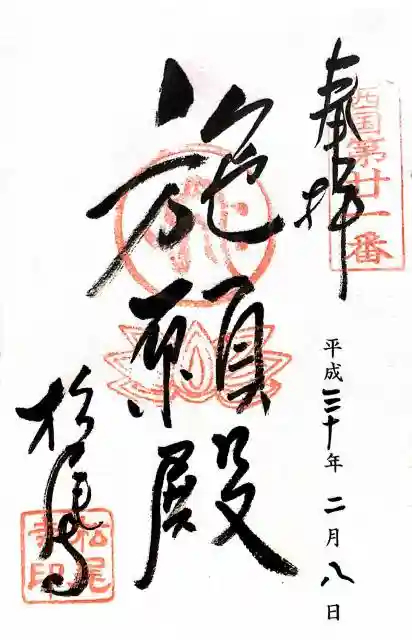 奉拝
西国第廿一番
平成三十年二月八日
施願殿
松尾寺
松尾寺印